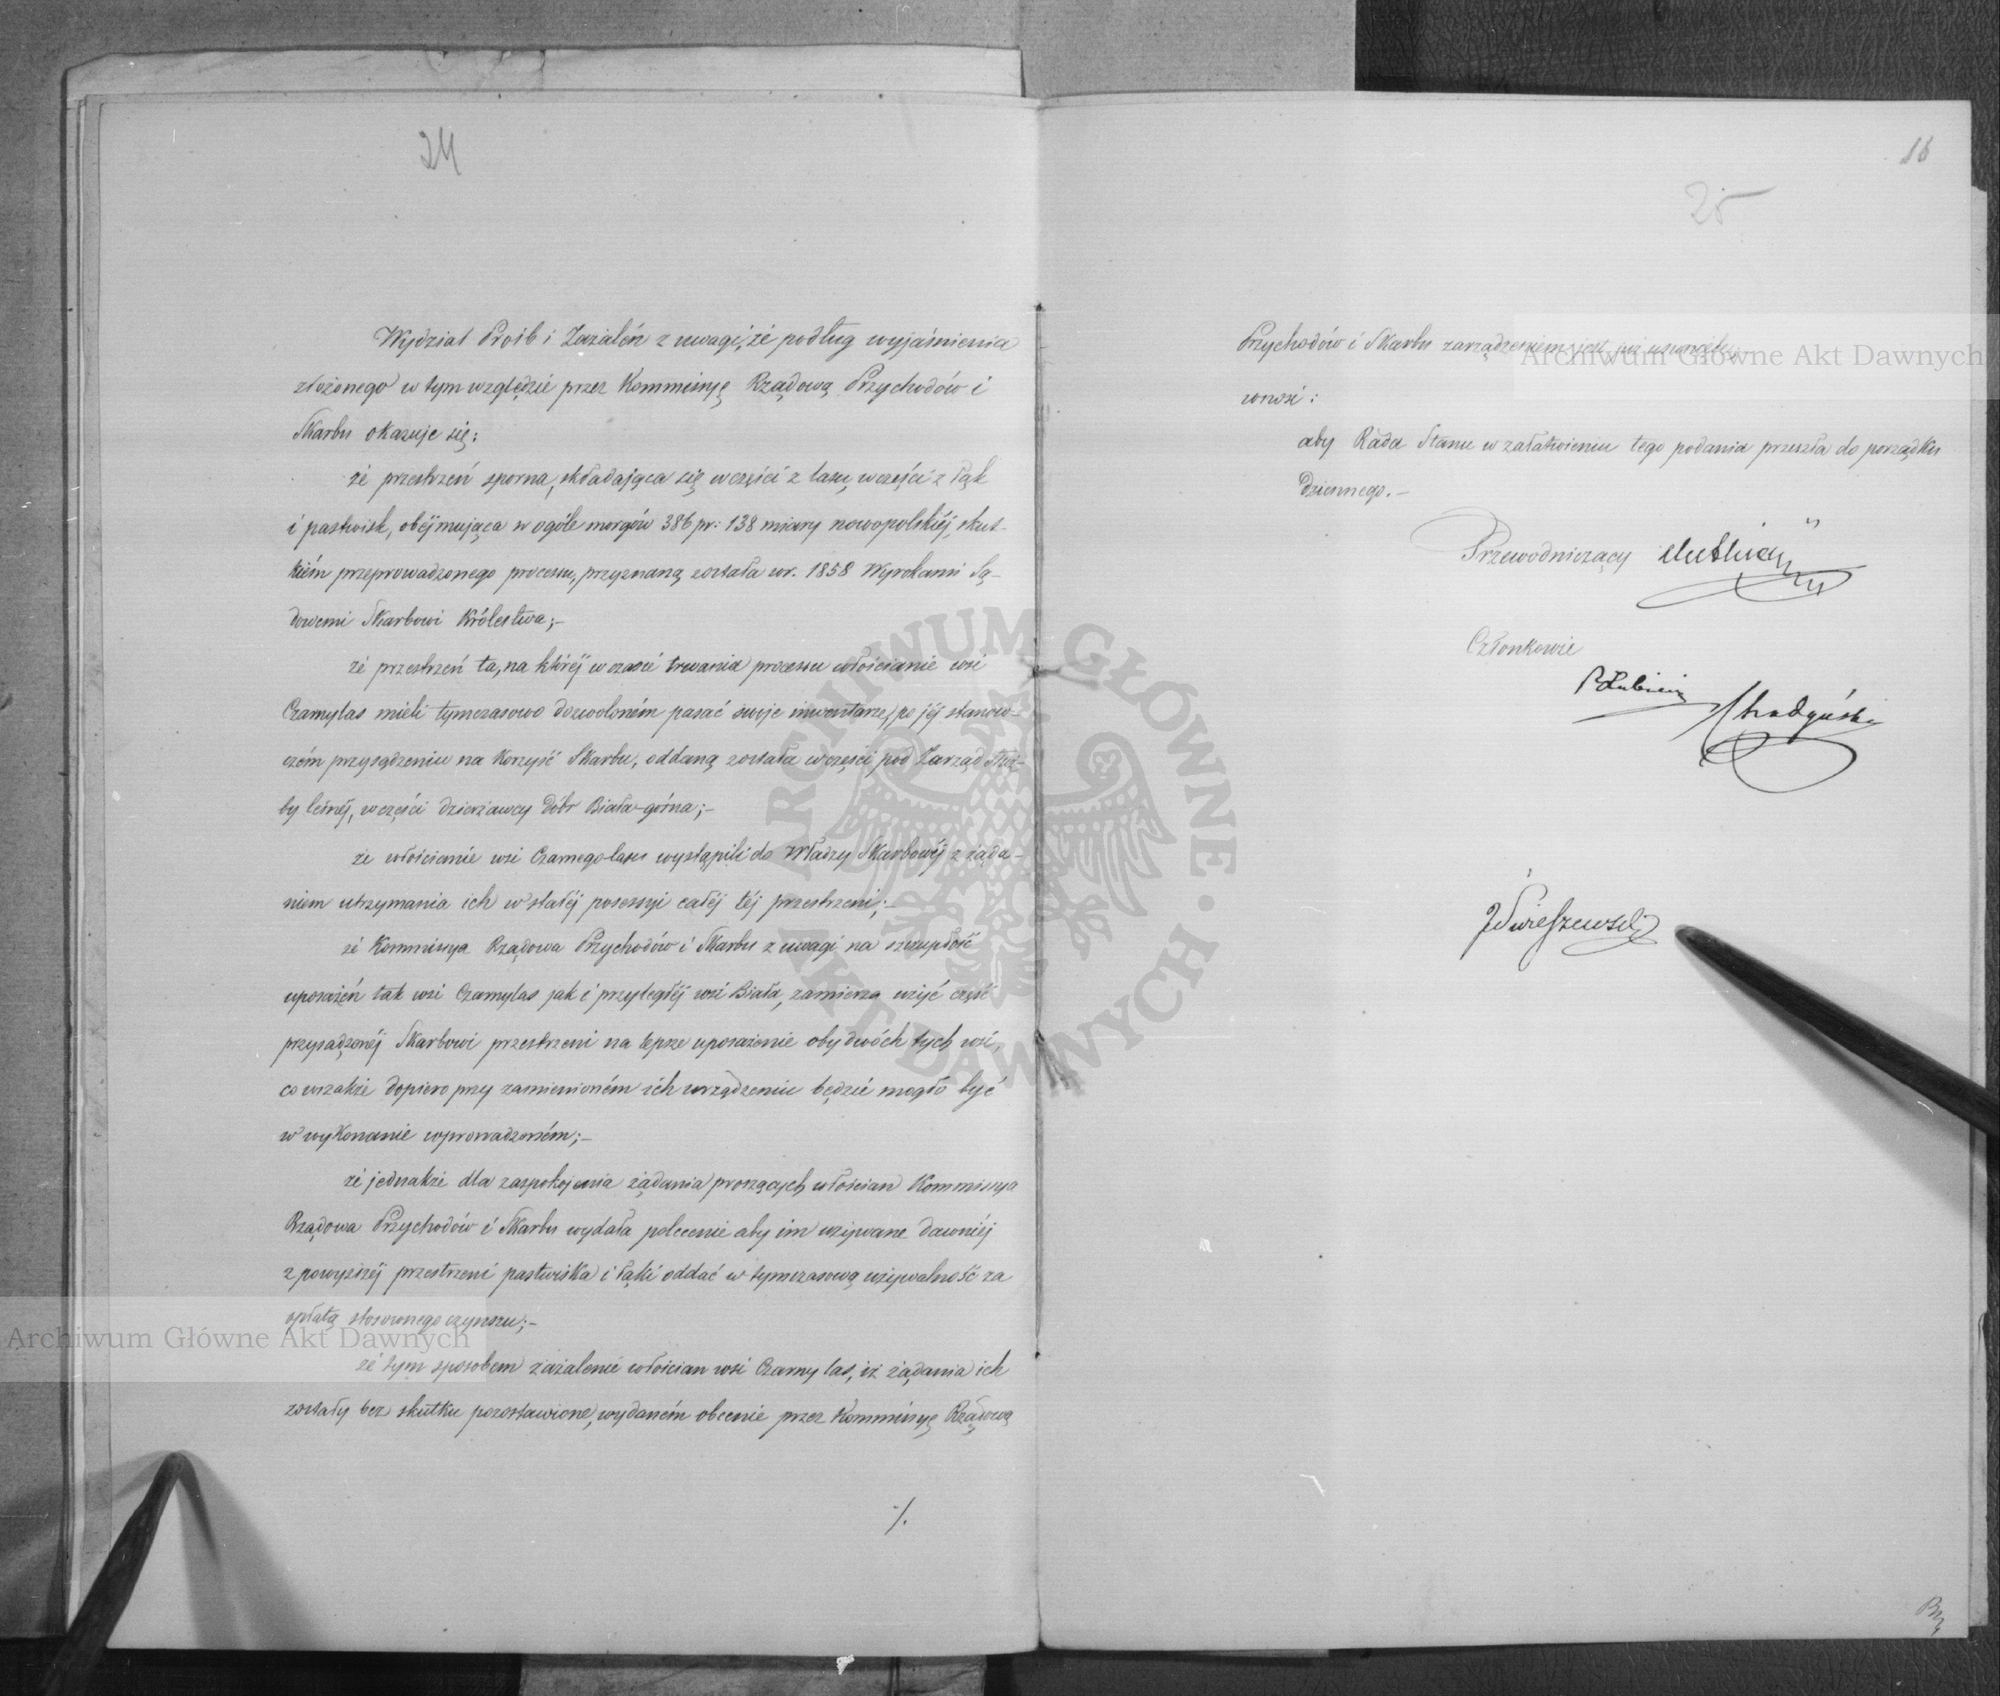 24
Wydział Próśb i Zażaleń z uwagi, że podług wyjaśnienia
złożonego w tym względzie przez Kommissyę Rządową Przychodów i
Skarbu okazuje się:
że przestrzeń sporna, składająca się w części z lasu, w części z łąk
i pastwisk, obéjmująca w ogóle morgów 386 pr: 138 miary nowopolskiéj, skut-
kiém przeprowadzonego processu, przyznaną została w r. 1858 Wyrokami Są-
dowemi Skarbowi Królestwa;-
że przestrzeń ta, na któréj w czasie trwania processu włościanie wsi
Czarnylas mieli tymczasowo dozwoloném pasać swoje inwentarze, po jéj stanow-
czém przysądzeniu na korzyść Skarbu, oddaną została w części pod Zarząd Służ-
by leśnéj, w części dzierżawcy dóbr Biała-górna;-
że włościanie wsi Czarnego-lasu wystąpili do Władzy Skarbowéj z żąda-
niem utrzymania ich w stałéj posessyi całéj téj przestrzeni;-
że Kommissya Rządowa Przychodów i Skarbu z uwagi na szczupłość
uposażeń tak wsi Czarnylas jak i przyległéj wsi Biała, zamierza użyć część
przysądzonéj Skarbowi przestrzeni na lepsze uposażenie obydwóch tych wsi,
co wszakże dopiero przy zamienioném ich urządzeniu będzie mogło być
w wykonanie wprowadzoném;-
że jednakże dla zaspokojenia żądania proszących włościan Kommissya
Rządowa Przychodów i Skarbu wydała polecenie aby im używane dawniéj
z powyższéj przestrzeni pastwiska i łąki oddać w tymczasową używalność za
opłatą stosownego czynszu;-
że tym sposobem zażalenie włościan wsi Czarny las, iż żądania ich
zostały bez skutku pozostawione, wydaném obecnie przez Kommissyę Rządową
./.
16
25
Przychodów i Skarbu zarządzeniem jest już usunięte,
wnosi:
aby Rada Stanu w załatwieniu tego podania przeszła do porządku
dziennego.-
Przewodniczący
Członkowie
Archiwum Główne Akt Dawnych
Archiwum Główne Akt Dawnych
ARCHIWUM GŁÓWNE AKT DAWNYCH